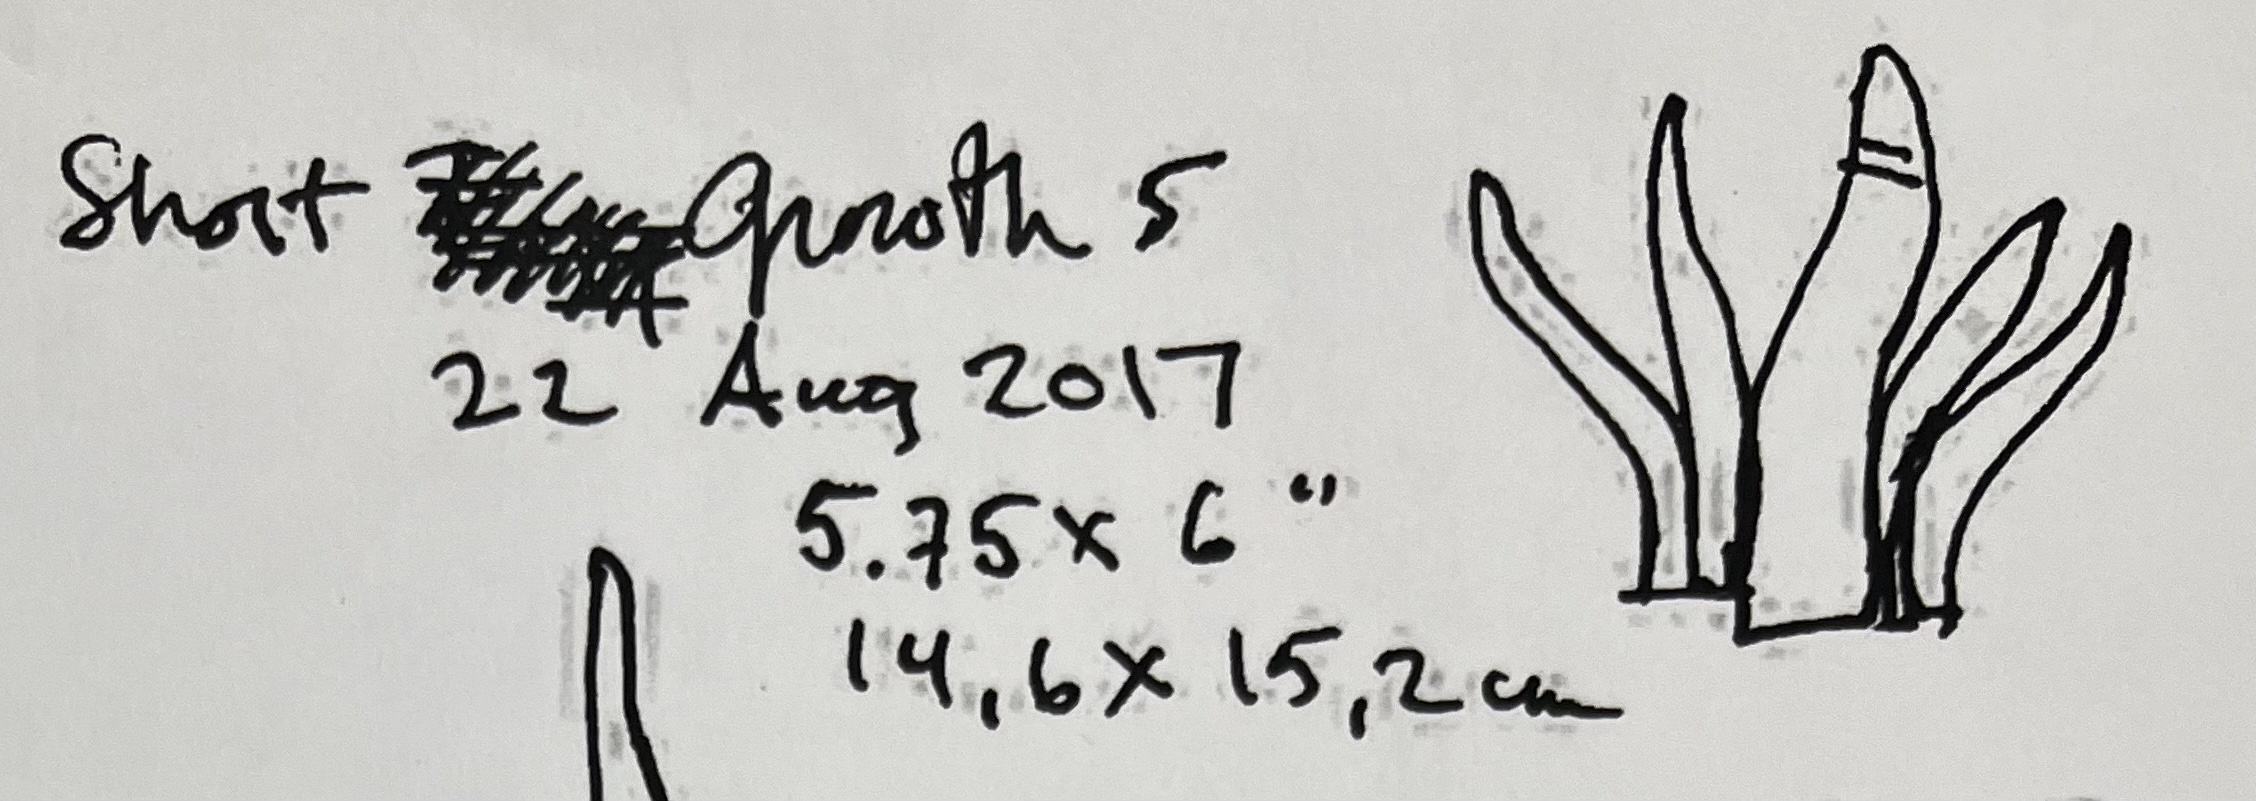 Short Growth 5
22 Aug 2017
5.75 x 6"
14,6 x 15,2 cm